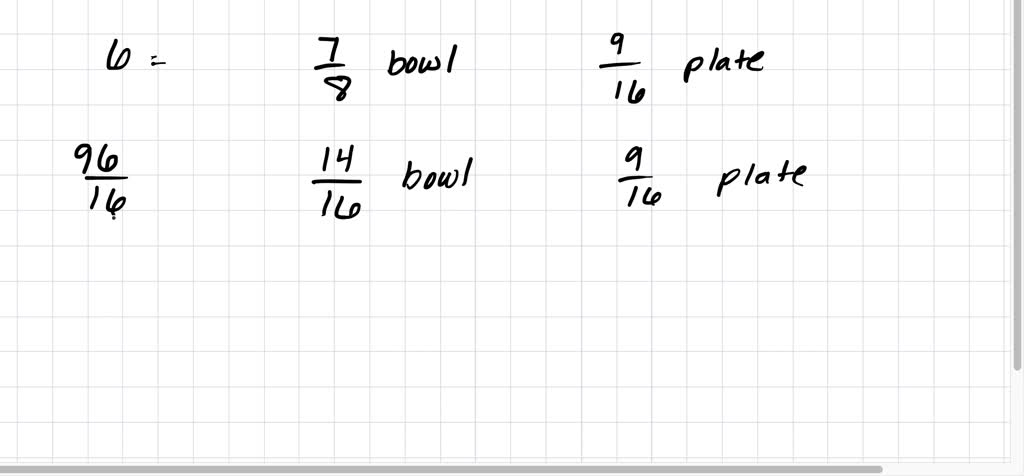 6 = 7/8 bowl 9/16 plate
96/16 14/16 bowl 9/16 plate